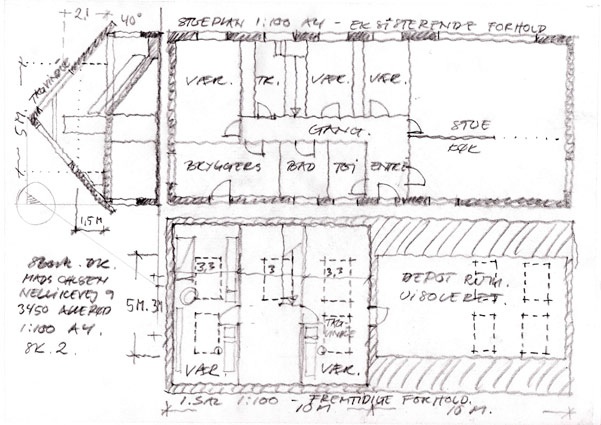 2.1
40°
STUEPLAN 1:100 A4 - EKSISTERENDE FORHOLD
VÆR.
TR.
VÆR.
VÆR.
5 M.
GANG.
STUE
KØK
BRYGGERS
BAD
TØJ
ENTRE
1,5 M
MADS OLSEN
NELLIKEVEJ 9
3450 ALLERØD
1:100 A4.
SK. 2.
5 M.
3,3
3
3,3
DEPOT RUM.
UISOLERET.
VÆR
VÆR.
1. SAL 1:100 - FREMTIDIGE FORHOLD.
10 M
10 M.